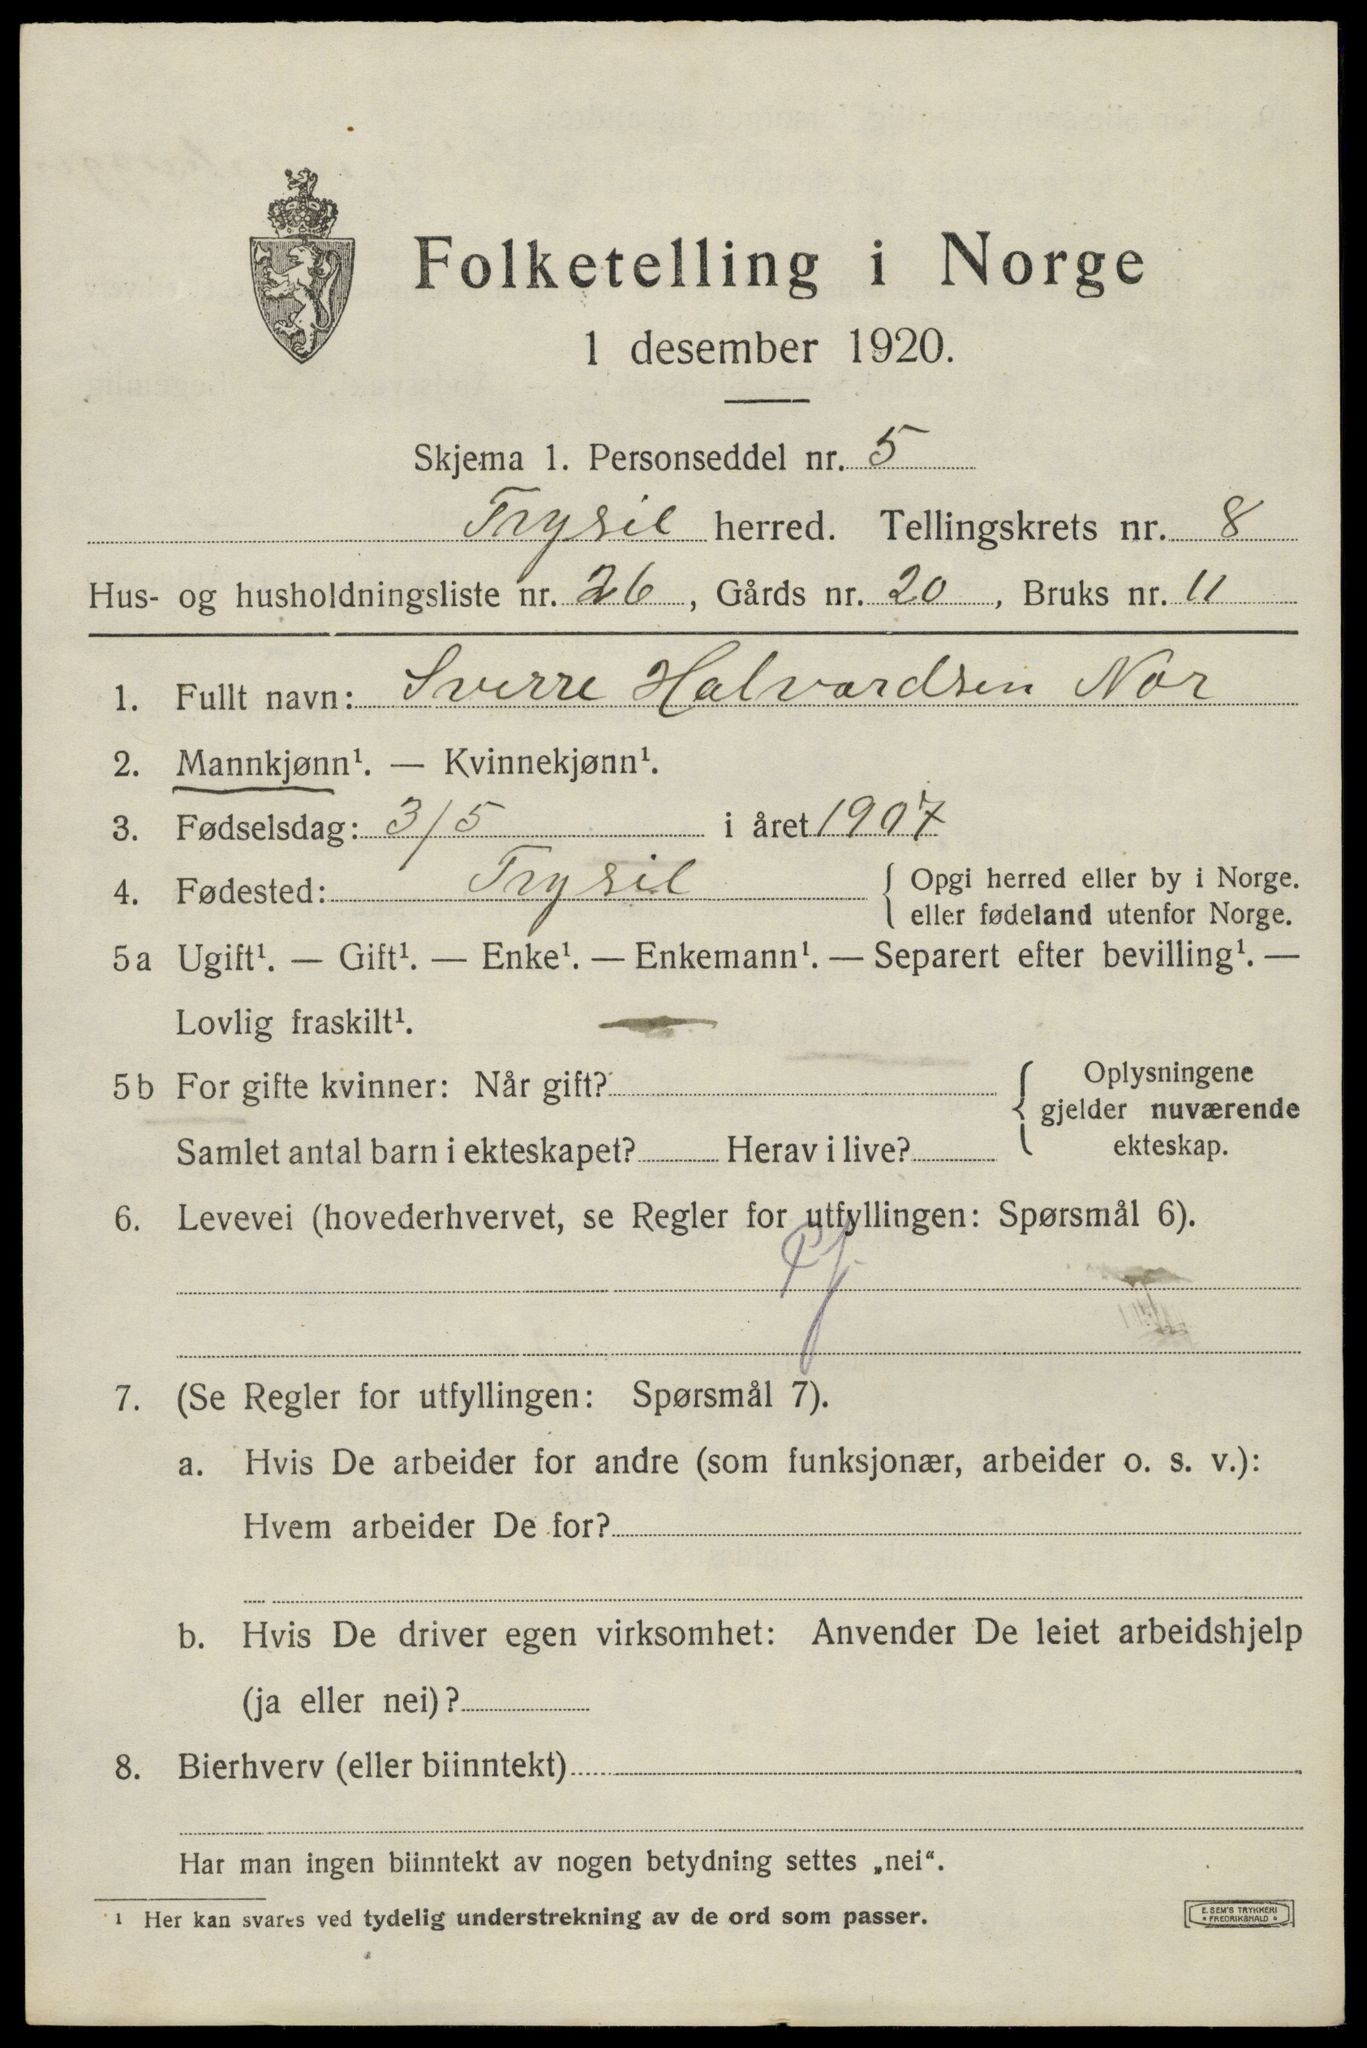 Folketelling i Norge
1 desember 1920.
Skjema 1. Personseddel nr. 5
Trysil herred. Tellingskrets nr. 8
Hus- og husholdningsliste nr. 26, Gårds nr. 20, Bruks nr. 11
1. Fullt navn: Sverre Halvardsen Nor
2. Mannkjønn¹. — Kvinnekjønn¹.
3. Fødselsdag: 3/5 i året 1907
4. Fødested: Trysil { Opgi herred eller by i Norge.
eller fødeland utenfor Norge.
5a Ugift¹. — Gift¹. — Enke¹. — Enkemann¹. — Separert efter bevilling¹. —
Lovlig fraskilt¹.
5b For gifte kvinner: Når gift? { Oplysningene
gjelder nuværende
Samlet antal barn i ekteskapet? Herav i live? ekteskap.
6. Levevei (hovederhvervet, se Regler for utfyllingen: Spørsmål 6).
7. (Se Regler for utfyllingen: Spørsmål 7).
a. Hvis De arbeider for andre (som funksjonær, arbeider o. s. v.):
Hvem arbeider De for?
b. Hvis De driver egen virksomhet: Anvender De leiet arbeidshjelp
(ja eller nei)?
8. Bierhverv (eller biinntekt)
Har man ingen biinntekt av nogen betydning settes „nei“.
¹ Her kan svares ved tydelig understrekning av de ord som passer.
E. SEM'S TRYKKERI
* FREDRIKSHALD *